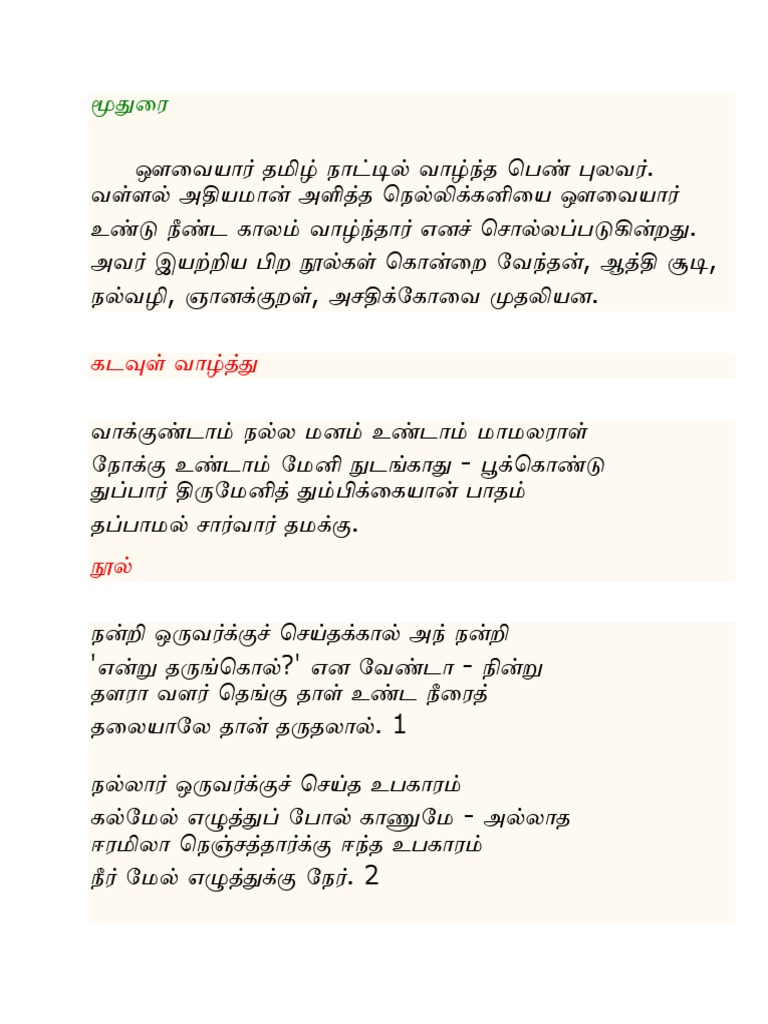 மூதுரை
ஔவையார் தமிழ் நாட்டில் வாழ்ந்த பெண் புலவர்.
வள்ளல் அதியமான் அளித்த நெல்லிக்கனியை ஔவையார்
உண்டு நீண்ட காலம் வாழ்ந்தார் எனச் சொல்லப்படுகின்றது.
அவர் இயற்றிய பிற நூல்கள் கொன்றை வேந்தன், ஆத்தி சூடி,
நல்வழி, ஞானக்குறள், அசதிக்கோவை முதலியன.
கடவுள் வாழ்த்து
வாக்குண்டாம் நல்ல மனம் உண்டாம் மாமலராள்
நோக்கு உண்டாம் மேனி நுடங்காது - பூக்கொண்டு
துப்பார் திருமேனித் தும்பிக்கையான் பாதம்
தப்பாமல் சார்வார் தமக்கு.
நூல்
நன்றி ஒருவர்க்குச் செய்தக்கால் அந் நன்றி
'என்று தருங்கொல்?' என வேண்டா - நின்று
தளரா வளர் தெங்கு தாள் உண்ட நீரைத்
தலையாலே தான் தருதலால். 1
நல்லார் ஒருவர்க்குச் செய்த உபகாரம்
கல்மேல் எழுத்துப் போல் காணுமே - அல்லாத
ஈரமிலா நெஞ்சத்தார்க்கு ஈந்த உபகாரம்
நீர் மேல் எழுத்துக்கு நேர். 2